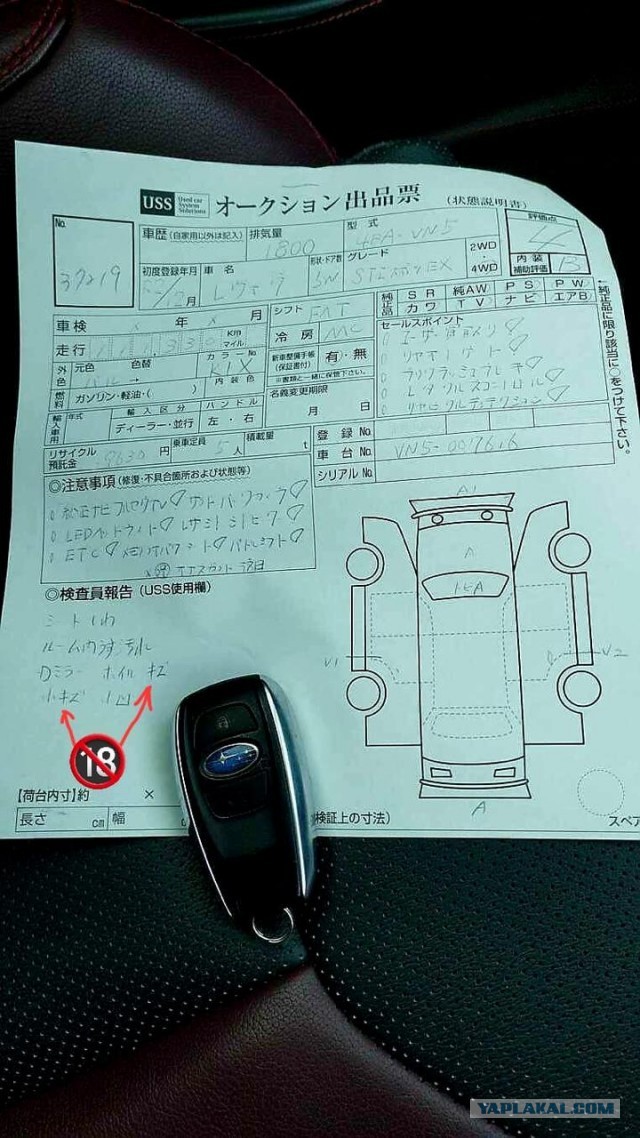 USS Used car System Solutions オークション 出品票 (状態説明書)
No. 37219
車歴 (自家用以外は記入) 排気量 1800 型式 4BA-VN5
評価点 4
初度登録年月 月 車名 レヴォーグ 形状・ドア数 SW グレード STIスポーツEX 2WD 4WD
内装補助評価 B
車検 年 月 シフト FAT
純正品 SR 純AW PS PW
カワ TV ナビ エアB
←純正品に限り該当に○をつけて下さい。
走行 111,330 Km マイル 冷房 AAC
セールスポイント
外色 元色 色替 カラーNo. K1X
パール → 内装色
新車整備手帳 (保証書付) 有・無
※書類と一緒に保管下さい。
燃料 ガソリン・軽油・( )
名義変更期限
月 日
輸入車用 年式 輸入区分 ハンドル
ディーラー・並行 左・右
リヤビークルディテクション
登録No.
リサイクル預託金 9630 円 乗車定員 5 人 積載量 t
車台No. VN5-007616
シリアルNo.
◎注意事項 (修復・不具合箇所および状態等)
純正ナビ フルセグTV
ETC パドルシフト
◎検査員報告 (USS使用欄)
シートしわ
ルーム内うす汚れ
Dミラー ホイル キズ
小キズ 小凹
18
A1
A
トビA
V1
V2
A
【荷台内寸】約 ×
長さ cm 幅
検証上の寸法)
スペア
YAPLAKAL.COM